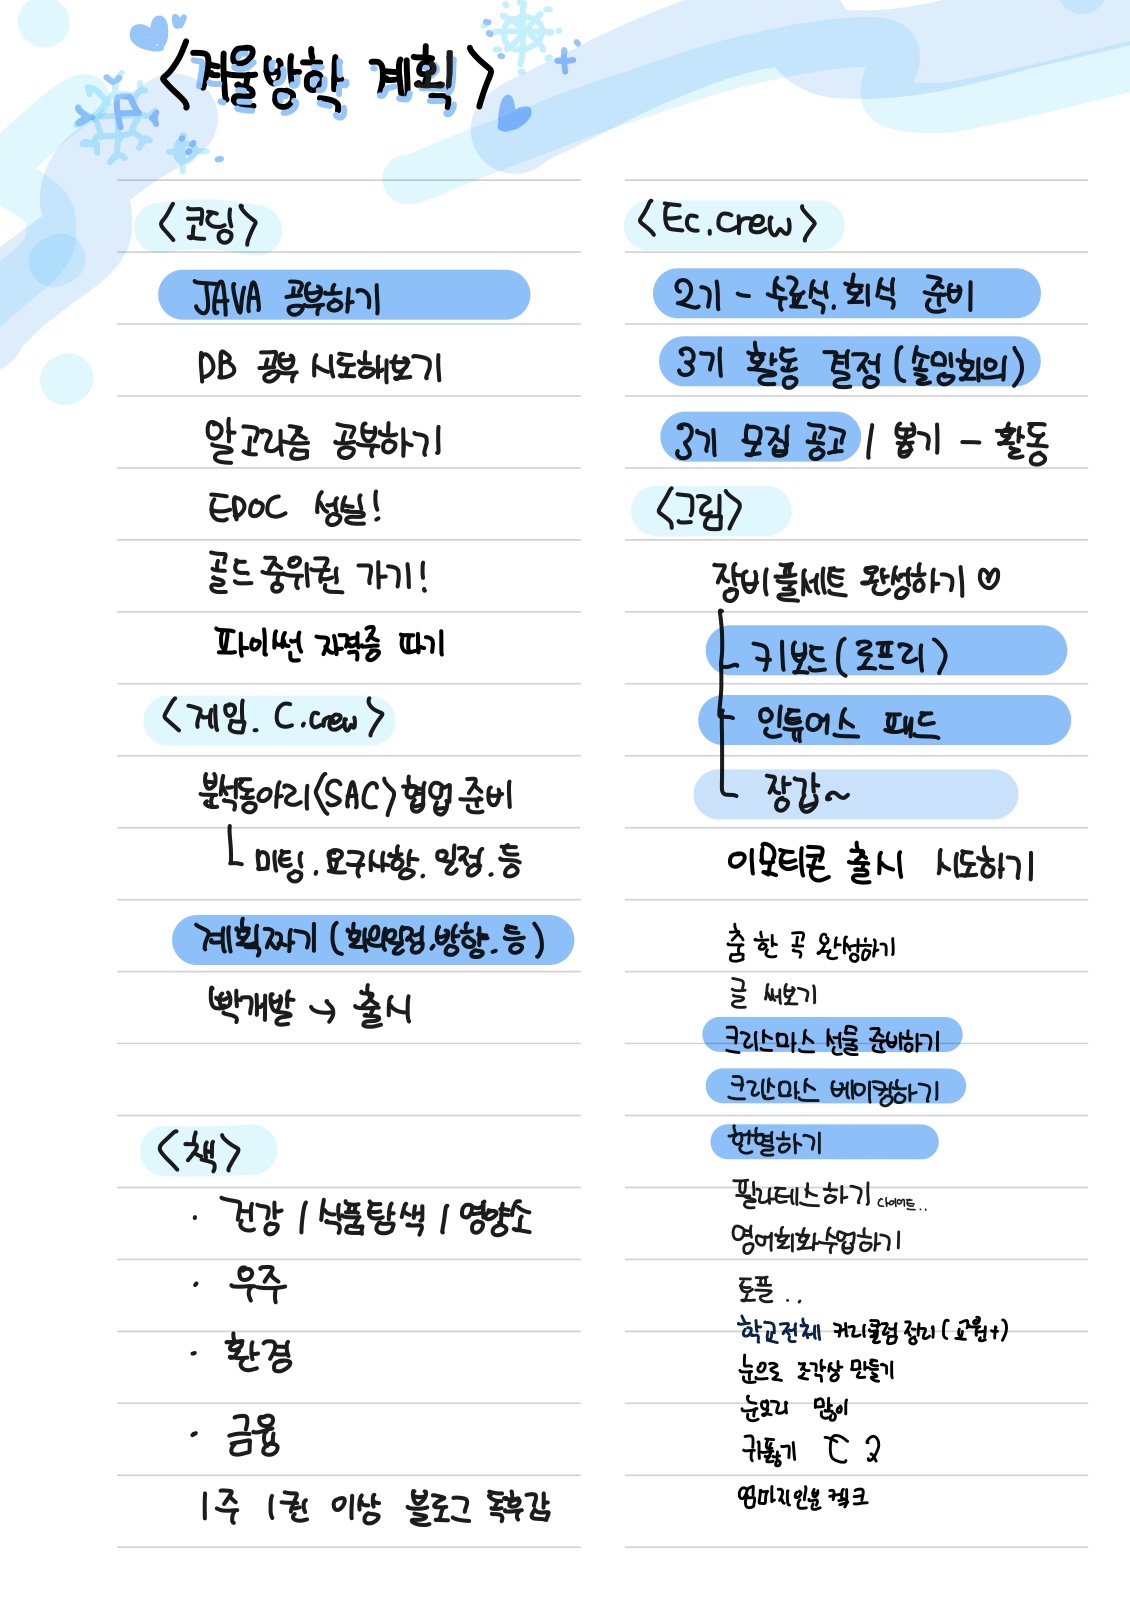 <겨울방학 계획>
<코딩>
JAVA 공부하기
DB 공부 시도해보기
알고리즘 공부하기
EDOC 성실!
골드 중위권 가기!
파이썬 자격증 따기
<게임. C.crew>
분석동아리<SAC>협업 준비
ㄴ 미팅.요구사항.일정.등
계획짜기 (회의일정.방향.등)
빡개발 → 출시
<책>
· 건강 / 식품탐색 / 영양소
· 우주
· 환경
· 금융
1주 1권 이상 블로그 독후감
<Ec.crew>
2기 - 수료식.회식 준비
3기 활동 결정 (솔밍회의)
3기 모집 공고 / 뽑기 - 활동
<그림>
장비풀세트 완성하기 ♡
ㄴ 키보드 (로프리)
ㄴ 인튜어스 패드
ㄴ 장갑~
이모티콘 출시 시도하기
춤 한 곡 완성하기
글 써보기
크리스마스 선물 준비하기
크리스마스 베이킹하기
헌혈하기
필라테스하기 다이어트..
영어회화수업하기
토플 ..
학교전체 커리큘럼 정리 (교원+)
눈으로 조각상 만들기
눈오리 많이
귀뚫기